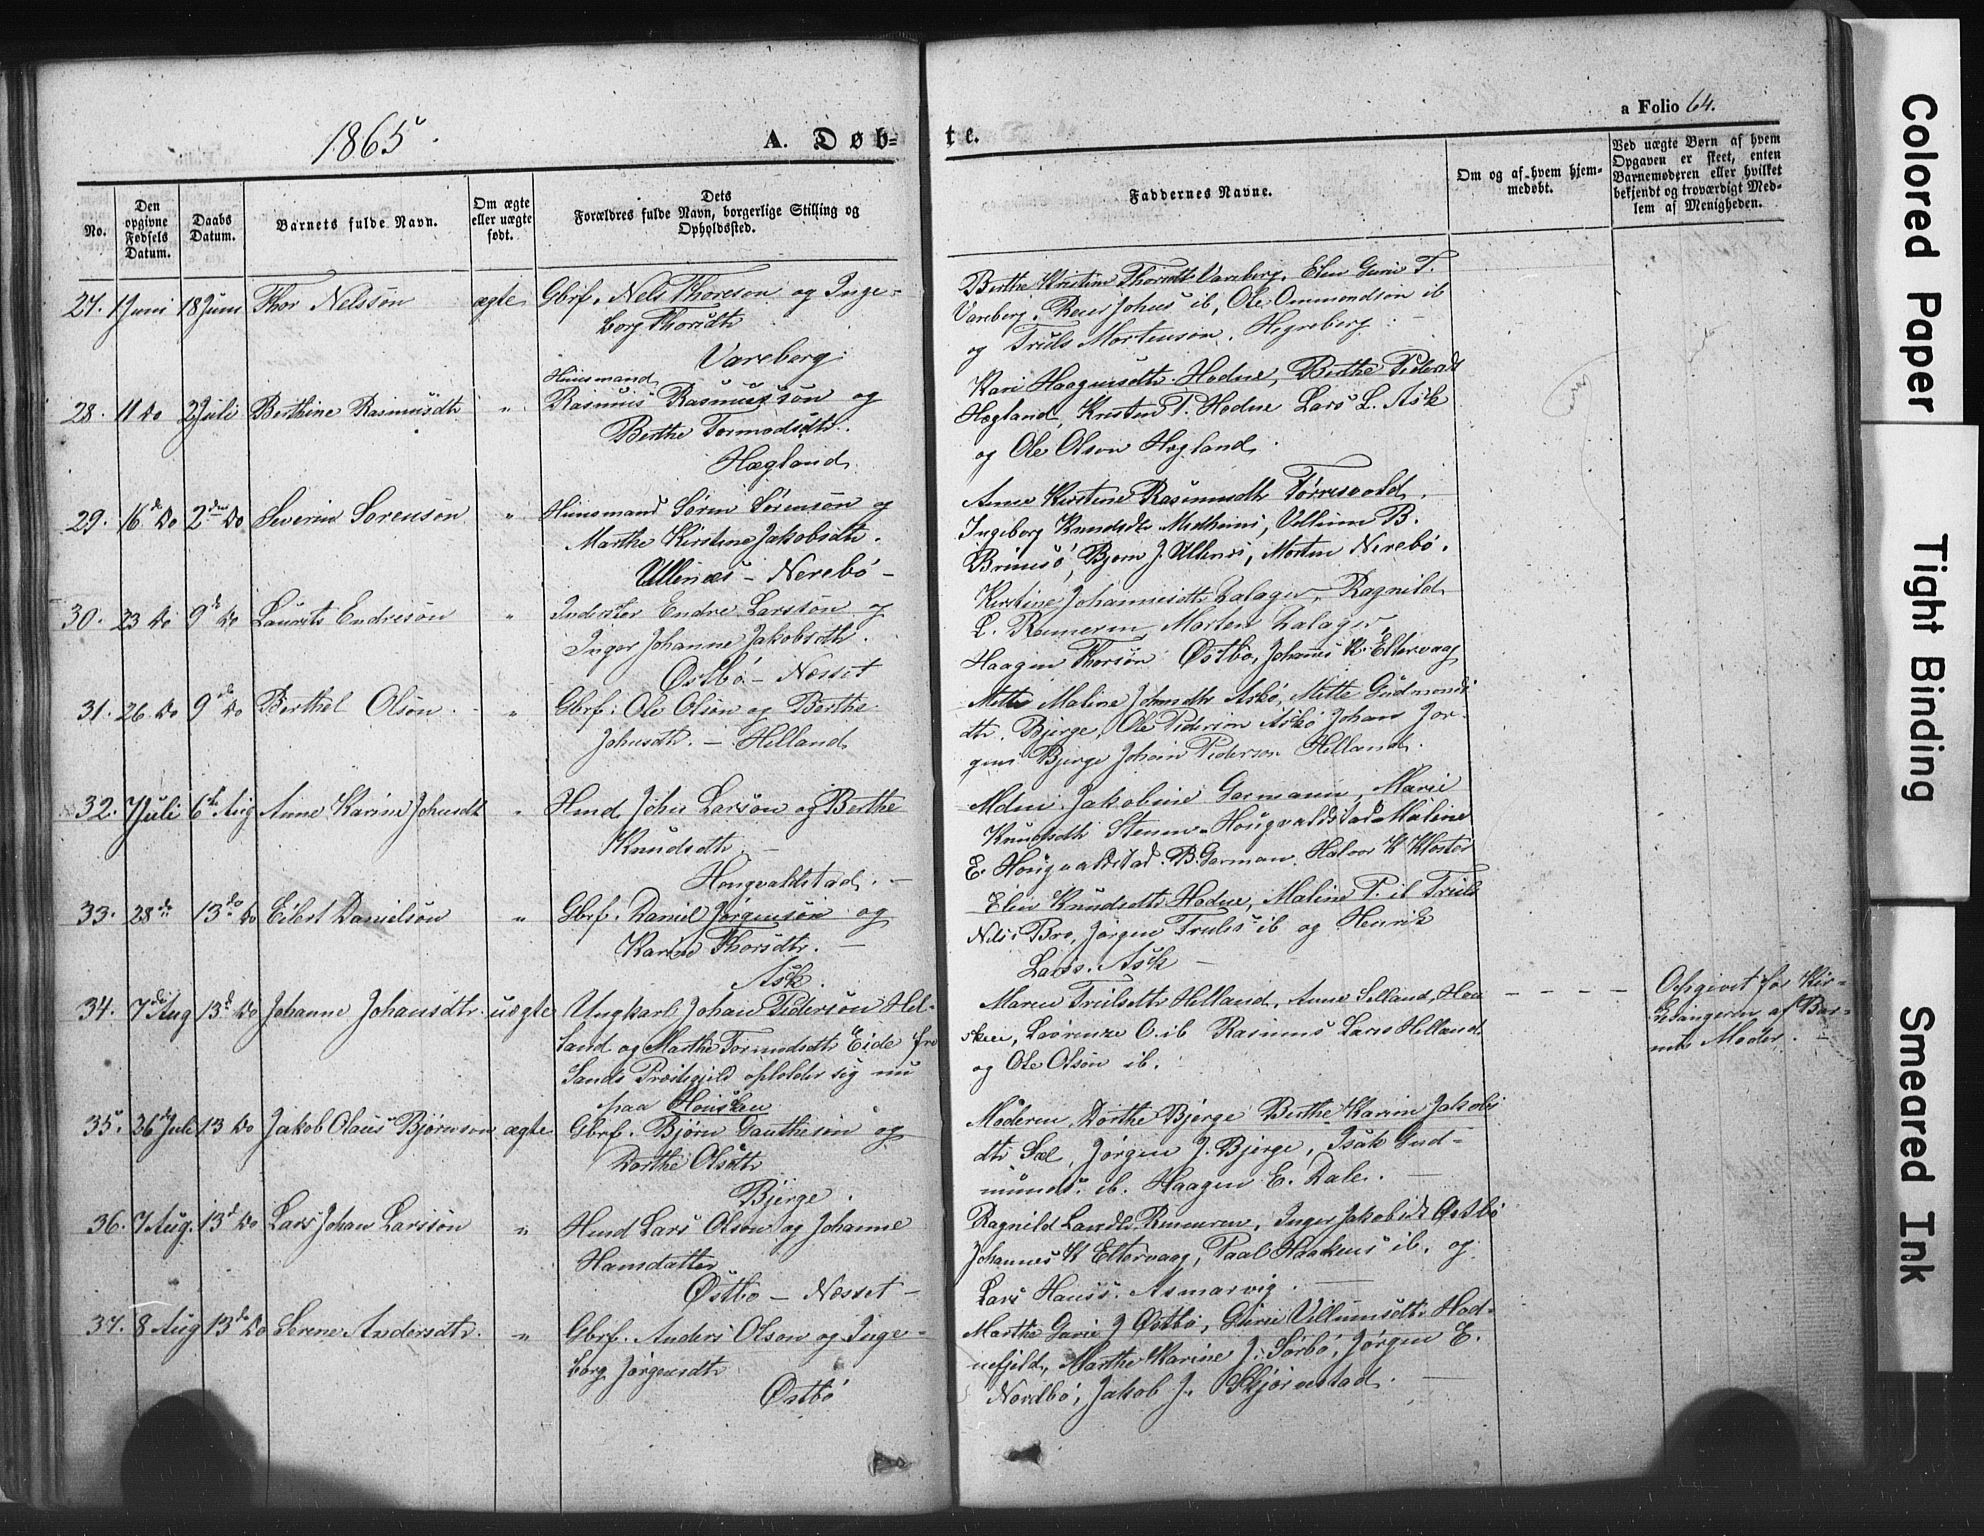 1865.
A. Døb-
te.
a Folio 64.
No.
Den opgivne Fødsels Datum.
Daabs Datum.
Barnets fulde Navn.
Om ægte eller uægte født.
Dets Forældres fulde Navn, borgerlige Stilling og Opholdssted.
Faddernes Navne.
Om og af hvem hjemmedøbt.
Ved uægte Børn af hvem
Opgaven er skeet, enten
Barnemoderen eller hvilket
bekjendt og troværdigt Med-
lem af Menigheden.
27. 1 Juni 18 Juni Thor Nelsson ægte Gbrf. Nels Thoreson og Inge-
borg Thorsdtr
Vareberg.
Berthe Kristine Thorsdtr Vareberg, Elen Gurie T.
Vareberg, Reier Johns ib, Ole Ommundson ib
og Truls Mortenson, Hegreberg
28. 11 Do 2 Juli Berthine Rasmusdtr "
Huusmand
Rasmus Rasmusson og
Berthe Tormodsdtr.
Hægland.
Kari Haagensdtr Hodne, Berthe Pedersdt
Hægland, Kristen P. Hodne Lars L. Ask
og Ole Olson Hægland.
29. 16 de Do 2 den Do Severin Sorenson " Huusmand Søren Sørenson og
Marthe Kirstine Jakobsdtr.
Ullenæs - Nerebö -
Anne Kirstine Rasmusdtr Torresvold.
Ingeborg Knudsdtr Medheim, Villum B.
Brimsö, Bjørn J. Ullenæs, Morten Nerebö.
30. 23 Do 9 de Do Laurits Endreson " Inderster Endre Larsson og
Inger Johanne Jakobsdtr.
Østbö - Næsset
Kirstine Johannesdtr Lalager, Ragnild
L. Rameren Morten Lalager,
Haagen Thorson Østbo, Johannes K. Eltervaag
31. 26 Do 9 de Do Berthel Olson. " Gbrf: Ole Olson og Berthe
Johnsdtr. - Helland
Mette Maline Johnsdtr Askö, Mette Gudmunds
dtr. Bjerge, Ole Pederson Askö Johan Jør-
gens Bjerge Johan Pederson Helland.
32. 7 Juli 6 te Aug Anne Karine Johnsdtr " Hmd John Larson og Berthe
Knudsdtr. -
Hougvaldstad. -
Mdm. Jakobine Garmann, Marie
Knudsdtr Stenen Hougvaldstad Maline
E. Hougvaldstad. B. Garman. Halvor K Kloster
33. 28 de 13 de Do Eilert Danielson " Gbrf. Daniel Jørgenson og
Karen Thorsdtr. -
Ask.
Elen Knudsdtr Hodne, Maline P. ib Truls
Nels: Bro, Jørgen Truls: ib og Henrik
Lars. Ask -
34. 7 de Aug 13 d Do Johanne Johansdtr. uægte Ungkarl Johan Pederson Hel-
land og Marthe Tormodsdtr Eide fra
Sands Præstegjeld opholder sig nu
paa Housken
Maren Trulsdtr Helland, Anne Selland, Hou
sken, Lovrenze O. ib Rasmus Lars Helland
og Ole Olson ib.
Opgivet for Kir-
kesangeren af Bar-
nets Moder.
35. 26 de Juli 13 Do Jakob Olaus Bjørnson ægte Gbrf. Bjørn Gautheson og
Dorthe Olsdtr
Bjerge.
Moderen Dorthe Bjerge Berthe Karin Jakobs
dtr Sæl, Jørgen J. Bjerge, Isak Gud-
munds. ib. Haagen E. Dale. -
36. 7 Aug. 13 d Do Lars Johan Larsson " Hmd Lars Olson og Johanne
Hansdatter
Østbo - Næsset -
Ragnild Larsdtr. Rameren, Inger Jakobsdt Østbö
Johannes K Eltervaag, Paal Haakens ib. og
Lars Hanss. Asmarvig. -
37. 8 Aug 13 de Do Serene Andersdtr. " Gbrf. Anders Olson og Inge-
borg Jørgensdtr
Østbö
Marthe Gurie J Østbö, Gurie Villumsdtr Hod-
nefjeld, Marthe Karine J. Sørbö, Jørgen E.
Nordbö, Jakob J. Skjørestad. -
Colored Paper
Tight Binding
Smeared Ink